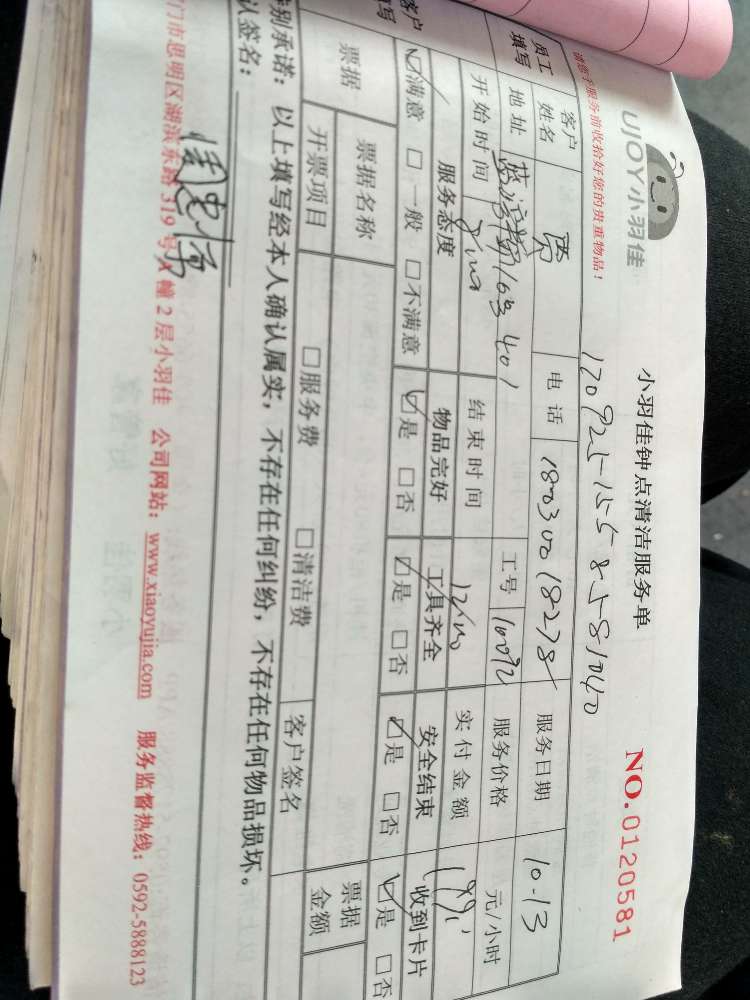 UJOY小羽佳
小羽佳钟点清洁服务单
NO.0120581
请您于服务前收拾好您的贵重物品!
员工
填写
客户
姓名
电话
服务日期 10.13
地址
工号
服务价格 元/小时
开始时间
结束时间
实付金额
客户
填写
服务态度 物品完好 工具齐全 安全结束 收到卡片
☑满意 □一般 □不满意 ☑是 □否 ☑是 □否 ☑是 □否 ☑是 □否
票据
票据名称
开票项目 □服务费 □清洁费
客户签名
票据
金额
特别承诺:以上填写经本人确认属实,不存在任何纠纷,不存在任何物品损坏。
认签名:
门市思明区湖滨东路319号A幢2层小羽佳 公司网站:www.xiaoyujia.com 服务监督热线:0592-5888123